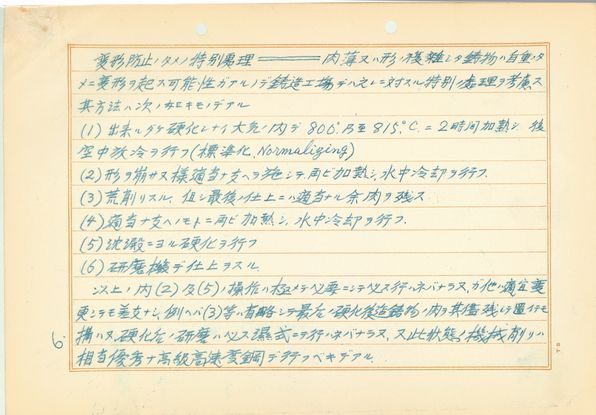 変形防止ノタメノ特別処理 ═══ 肉薄又ハ形ノ複雑シタ鋳物ハ自重ノタ
メニ変形ヲ起ス可能性ガアルノデ鋳造工場デハ之ニ対スル特別ノ処理ヲ考慮ス
其方法ハ次ノ如キモノデアル
(1) 出来ルダケ硬化シナイ大気ノ内デ 800°乃至815°C. ニ2時間加熱シ 後
空中放冷ヲ行フ(標準化、Normalizing)
(2) 形ヲ崩サヌ様適当ナ支ヘヲ施シテ再ビ加熱シ、水中冷却ヲ行フ.
(3) 荒削リスル. 但シ最後ノ仕上ニハ適当ナル余肉ヲ残ス
(4) 適当ナ支ヘノモトニ再ビ加熱シ、水中冷却ヲ行フ.
(5) 沈澱ニヨル硬化ヲ行フ
(6) 研磨機デ仕上ヲスル
以上ノ内(2)及(5)ノ操作ハ極メテ必要ニシテ必ズ行ハネバナラヌ、ガ他ハ適宜変
更シテモ差支ナシ、例ヘバ(3)等ハ省略シテ最后ノ硬化後迄鋳物ノ肉ヲ其儘残シテ置イテモ
構ハヌ、硬化后ノ研磨ハ必ズ湿式ニテ行ハネバナラヌ、又此状態ノ機械削リハ
相当優秀ナ高級高速度鋼デ行フベキデアル.
6.